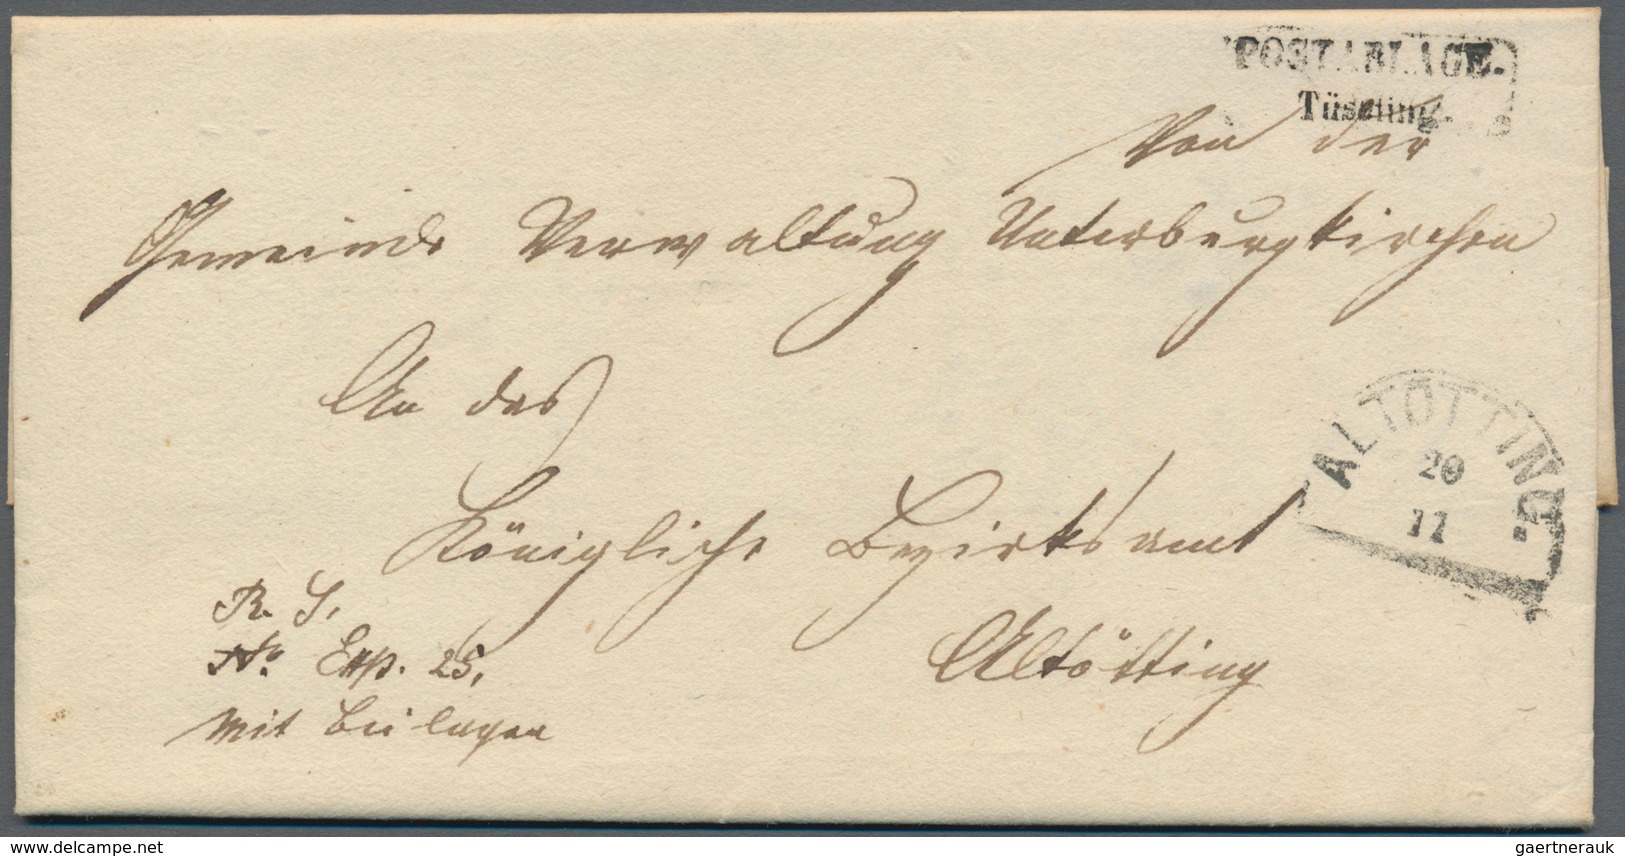 POSTABLAGE.
Tüssling.
Von der
Gemeinde Verwaltung Unterburgkirchen
An das
Königliche Bezirksamt
Altötting
ALTÖTTING
20
11
R. S.
No. Exp. 25.
mit Beilagen
www.delcampe.net
gaertnerauk